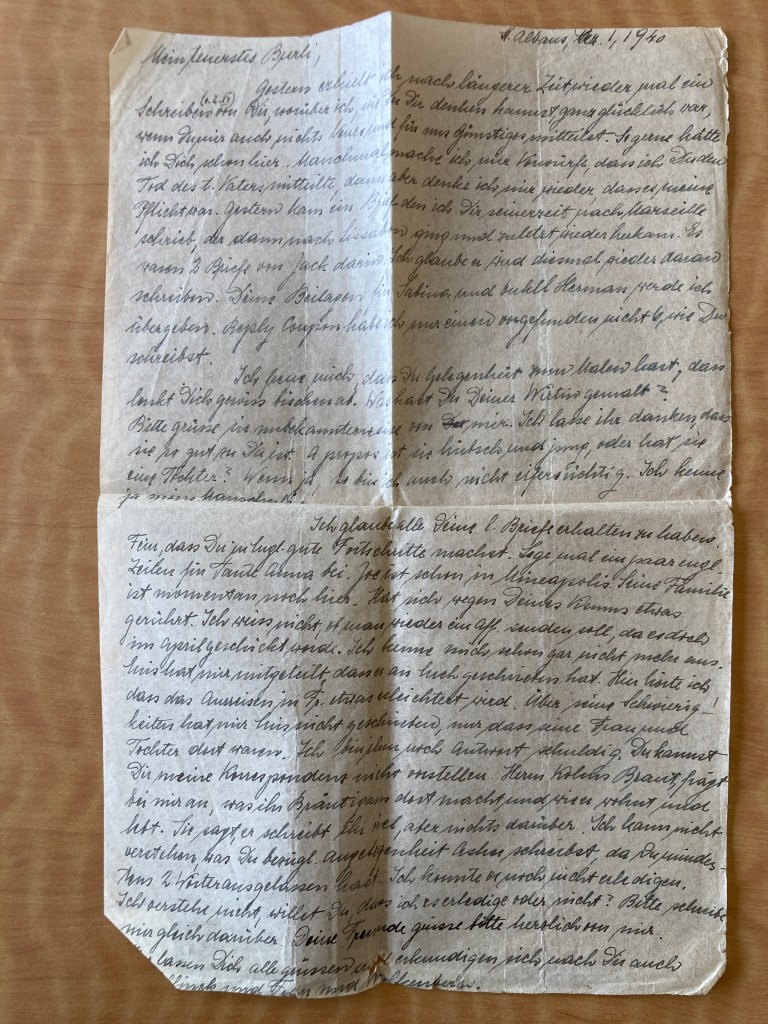 Mein teuerstes Burli,
St. Albans, 1, 1940
Gestern erhielt ich nach längerer Zeit wieder mal ein
Schreiben von Dir, worüber ich, wie Du Dir denken kannst, ganz glücklich war,
wenn Du mir auch nichts Neues und für uns Günstiges mitteilst. So gerne hätte
ich Dich schon hier. Manchmal mache ich mir Vorwürfe, dass ich Dir den
Tod des l. Vaters mitteilte, dann aber denke ich mir wieder, dass es meine
Pflicht war. Gestern kam ein Brief den ich Dir seinerzeit nach Marseille
schrieb, der dann nach Lissabon ging und zuletzt wieder herkam. Es
waren 2 Briefe von Jack darin. Ich glaube er wird diesmal wieder daran
schreiben. Deine Beilagen für Sabina und Herman, werde ich
übergeben. Reply Coupon habe ich nur einen vorgefunden nicht 6, wie Du
schreibst.
Ich freue mich, dass Du Gelegenheit zum Malen hast, das
lenkt Dich gewiss bischen ab. Was hast Du Deiner Wirtin gemalt?
Bitte grüsse sie unbekannterweise von mir. Ich lasse ihr danken, dass
sie so gut zu Dir ist. A propos ist sie hübsch und jung, oder hat sie
eine Tochter? Wenn ja, so bin ich auch nicht eifersüchtig. Ich kenne
ja mein
Ich glaube alle Deine l. Briefe erhalten zu haben.
Fein, dass Du in Engl. gute Fortschritte machst. Lege mal ein paar engl.
Zeilen für Tante Anna bei. Joe ist schon in Mineapolis. Seine Familie
ist momentan noch hier. Hat sich wegen Deines Kumms etwas
gerührt. Ich weiss nicht, ob man wieder ein Aff. senden soll, da es doch
im April geschickt wurde. Ich kenne mich schon gar nicht mehr aus.
hat mir mitgeteilt, dass er an Euch geschrieben hat. Hier hörte ich
dass das Ausreisen in Fr. etwas erleichtert wird. Über seine Schwierig-
keiten hat mir nicht geschrieben, nur dass seine Frau und
Tochter dort waren. Ich bin ihm noch Antwort schuldig. Du kannst
Dir meine Korrespondenz nicht vorstellen. Herrn Kohns Braut, frägt
bei mir an, was ihr Bräutigam dort macht und wie er wohnt und
lebt. Sie sagt, er schreibt ihr viel, aber nichts darüber. Ich kann nicht
verstehen, was Du bezügl. Angelegenheit schreibst, da Du mindes-
tens 2 Wörter ausgelassen hast. Ich konnte es noch nicht erledigen.
Ich verstehe nicht, willst Du, dass ich es erledige oder nicht? Bitte schreibe
mir gleich darüber. Deine Freunde grüsse bitte herzlich von mir.
lassen Dich alle grüssen und erkundigen sich nach Dir auch
und Frau und